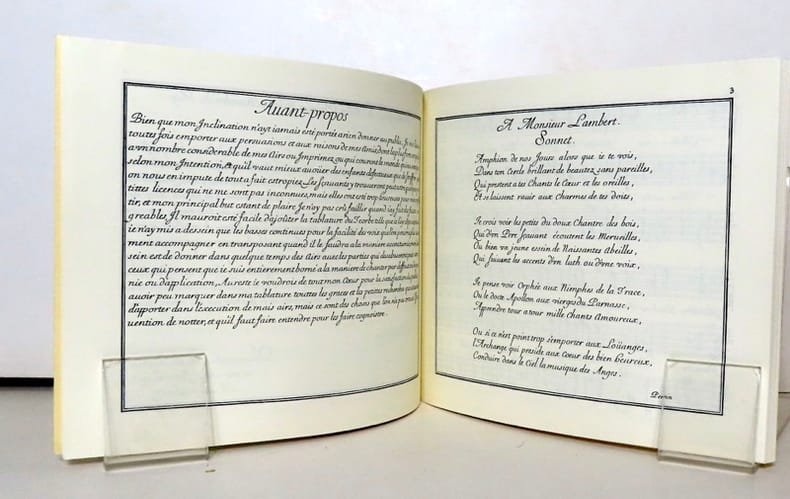 Auant-propos
Bien que mon Inclination n'ayt iamais esté portée a rien donner au public, Je n'ay
toutes fois emporter aux persuations et aux raisons de mes Amis
avn nombre considerable de mes Airs ou Imprimez, ou qui courent le monde
selon mon Intention, et qu'il vaut mieux auoüer des enfants defectueux que de souffrir
on nous en impute de tout a fait estropiez. Les sçauants y trouueront peut
tittes licences qui ne me sont pas inconnues, mais elles ont esté trop
tir, et mon principal but estant de plaire Je n'ay pas crû failler quand
greables. Il m'auroit esté facile d'ajoûter la tablature du Teorbe
ie n'ay mis a dessein que les basses continues pour la facilité du
ment accompagner en transposant quand il le faudra a la maniere
sein est de donner dans quelque temps des Airs auec les parties qui
ceux qui pensent que ie suis entierement borné a la maniere de chanter
nie ou d'application, Au reste ie voudrois de tout mon Cœur pour la satisfaction
auoir peu marquer dans ma tablature touttes les graces et les petites recherches
d'apporter dans l'execution de mais airs, mais ce sont des choses que l'on n'a
uention de notter, et qu'il faut faire entendre pour les faire cognoistre.
3
A Monsieur Lambert.
Sonnet.
Amphion de nos Jours alors que ie te vois,
Dans ton Cercle brillant de beautez sans pareilles,
Qui prestent a tes Chants le Cœur et les oreilles,
Et se laissent rauir aux Charmes de tes doits,
Je crois voir les petits du doux Chantre des bois,
Qui d'vn Père sçauant écoutent les Merueilles,
Ou bien vn jeune essein de Naissantes Abeilles,
Qui suiuent les accents d'vn luth ou d'vne voix,
Je pense voir Orphée aux Nimphes de la Trace,
Ou le docte Apollon aux vierges du Parnasse,
Aprendre tour a tour mille Chants Amoureux,
Ou si ce n'est point trop s'emporter aux Loüanges,
l'Archange qui preside aux Cœur des bien heureux,
Conduire dans le Ciel la musique des Anges.
Perin